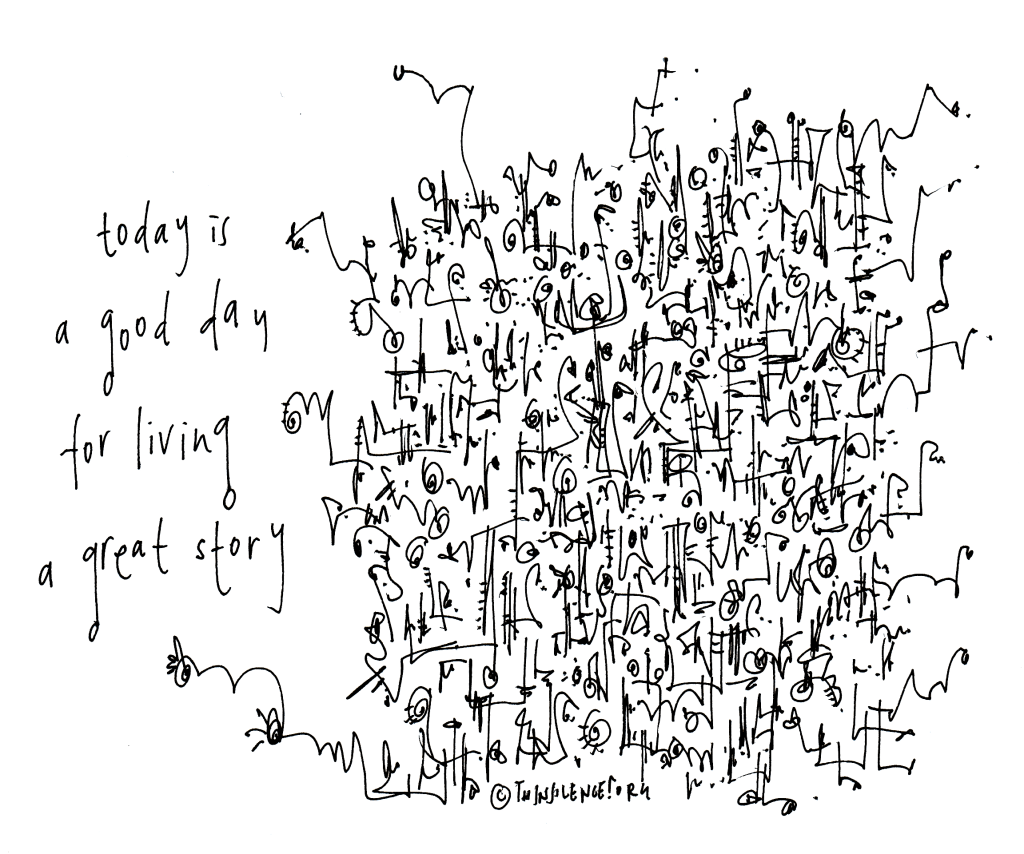 today is
a good day
for living
a great story